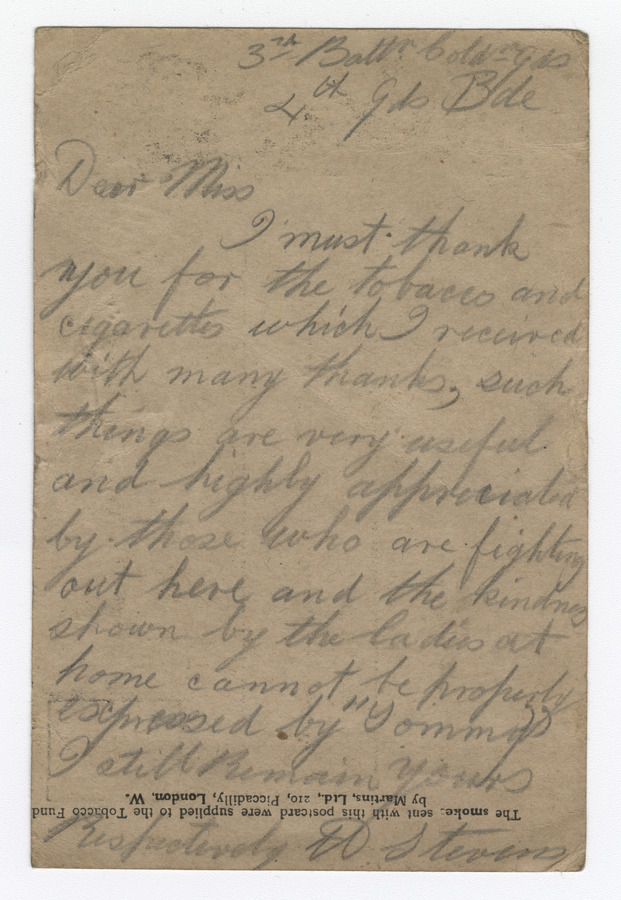 3rd Battn Coldm Gds
4th Gds Bde
Dear Miss
I must thank
you for the tobacco and
cigarettes which I received
with many thanks, such
things are very useful
and highly appreciated
by those who are fighting
out here and the kindness
shown by the ladies at
home cannot be properly
expressed by "Tommy"
I still Remain Yours
The smokes sent with this postcard were supplied to the Tobacco Fund
by Martins, Ltd., 210, Piccadilly, London. W.
Respectively Stevens